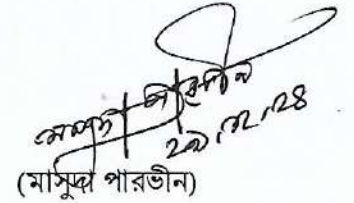 মাসুদা পারভীন
২৯/১২/২৪
(মাসুদা পারভীন)